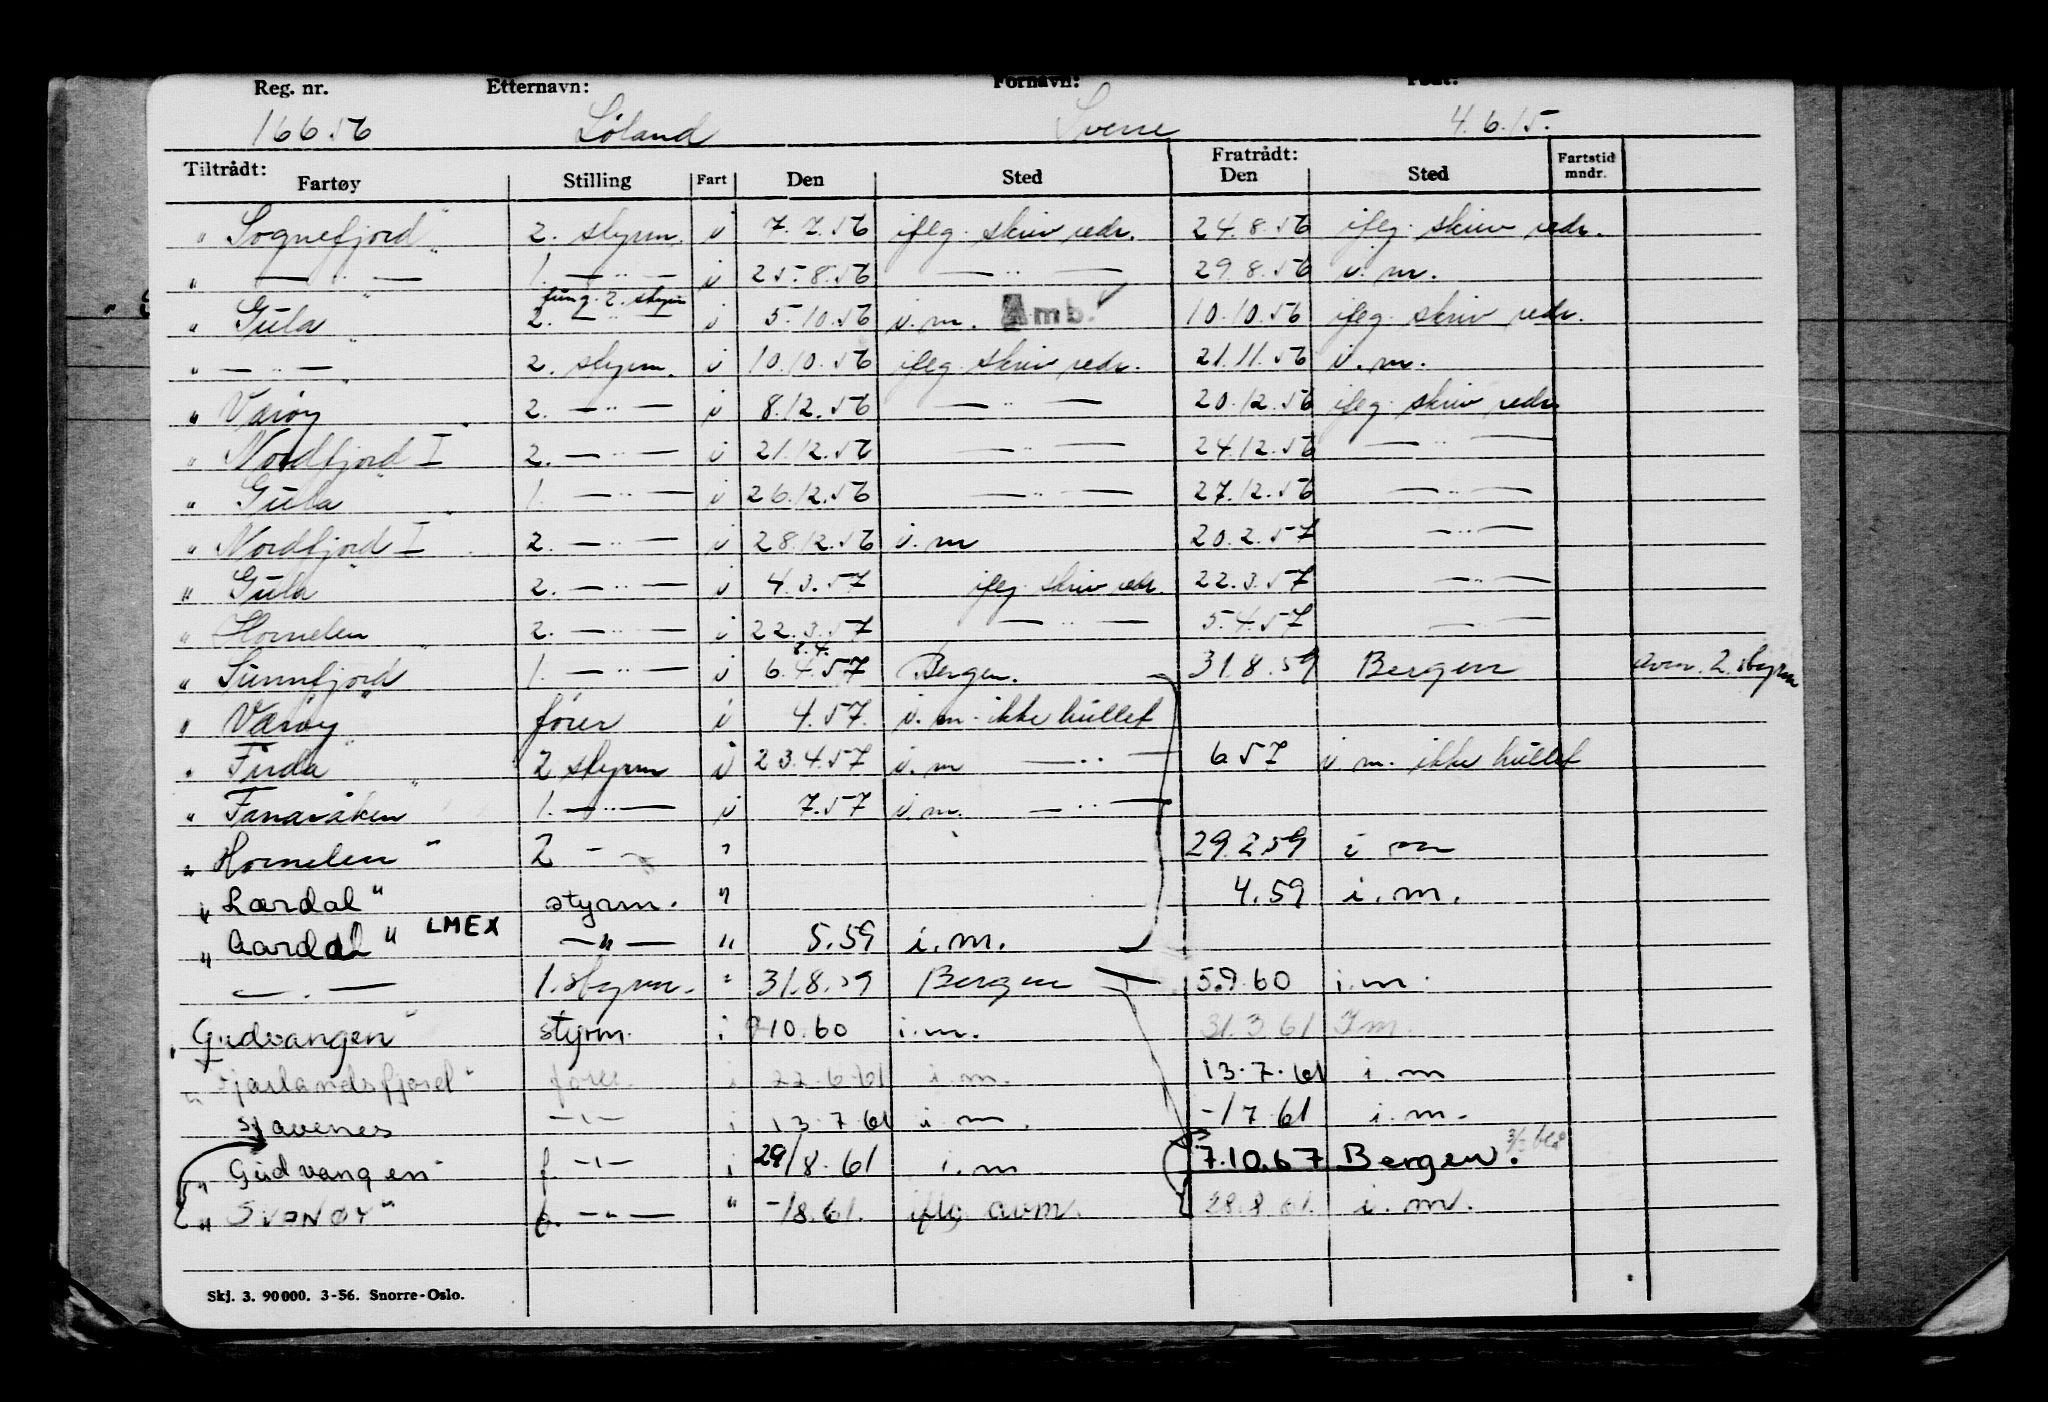 Reg. nr. Etternavn: Fornavn: Født:
16656 Løland Sverre 4.6.15.
Tiltrådt: Fratrådt:
Fartøy Stilling Fart Den Sted Den Sted Fartstid mndr.
" Sognefjord" 2. styrm. i 7.7.56 iflg. skriv redr. 24.8.56 iflg. skriv redr.
" — " — 1. — " — i 25.8.56 — " — 29.8.56 i.m.
fung. 2. styrm
" Gula" 2. — " — i 5.10.56 i.m. Amb. ✓ 10.10.56 iflg. skriv redr.
" — " — 2. styrm. i 10.10.56 iflg. skriv redr. 21.11.56 i.m.
" Værøy" 2. — " — i 8.12.56 — " — 20.12.56 iflg. skriv redr.
" Nordfjord I" 2. — " — i 21.12.56 — " — 24.12.56 — " —
" Gula" 1. — " — i 26.12.56 — " — 27.12.56 — " —
" Nordfjord I" 2. — " — i 28.12.56 i.m 20.2.57 — " —
" Gula" 2. — " — i 4.3.57 iflg. skriv redr. 22.3.57 — " —
" Hornelen 2. — " — i 22.3.57 — " — 5.4.57 — " —
8.4.
" Sunnfjord" 1. — " — i 6.4.57 Bergen. 31.8.59 Bergen avm. 2. styrm
" Værøy" fører i 4.57. i.m. ikke hullet
" Firda" 2 styrm i 23.4.57 i.m — " — 6.57 i.m. ikke hullet
" Fanaråken" 1. — " — i 7.57 i.m. — " —
" Hornelen" 2 — " — " 29.2.59 i m
" Lærdal" styrm. " 4.59 i.m.
" Aardal" LMEX — " — " 5.59 i.m.
— " — 1. styrm. " 31.8.59 Bergen 5.9.60 i.m.
" Gudvangen" styrm. i 10.60 i.m. 31.3.61 I.m.
" Fjærlandsfjord" fører i 22.6.61 i.m. 13.7.61 i.m
Stavenes — " — i 13.7.61 i.m. -/7.61 i.m.
" Gudvangen" f. — " — i 29/8.61 i.m 7.10.67 Bergen.
" SVANØY" f. — " — " -/8.61. iflg avm. 28.8.61. i.m.
Skj. 3. 90000. 3-56. Snorre-Oslo.